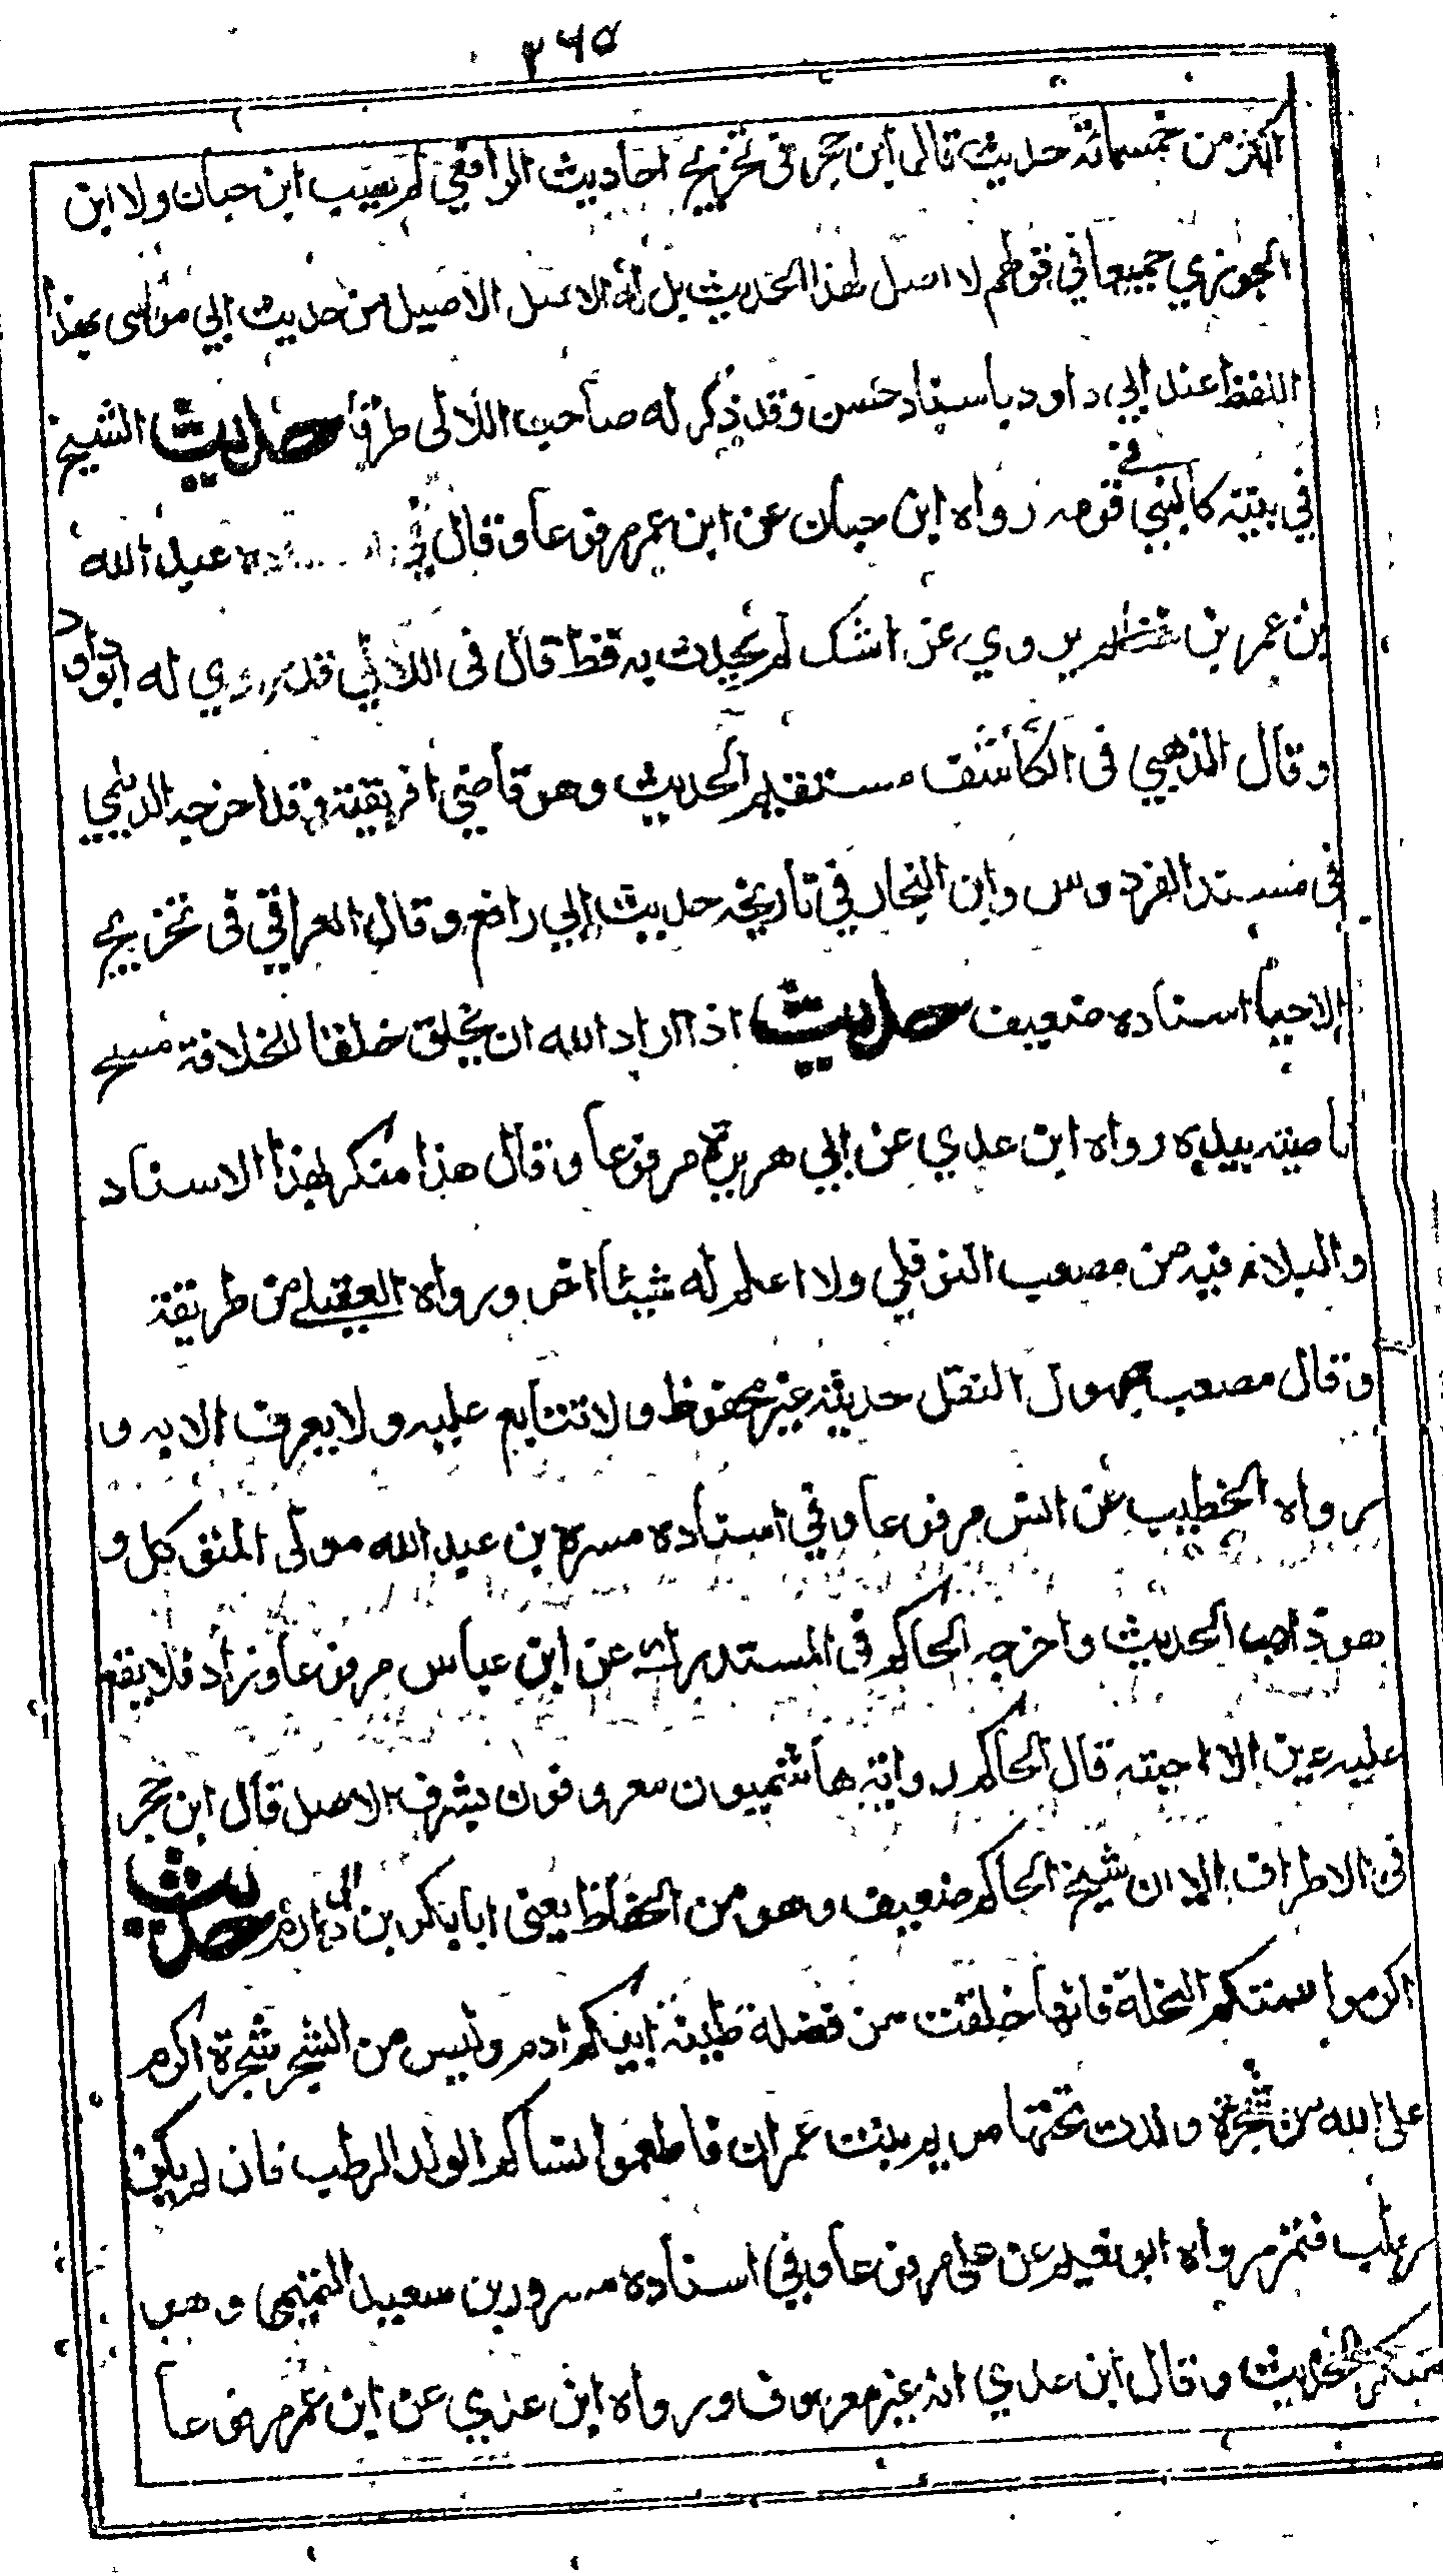 ٢٦٥
اكثر من خمسمائة حديث قال ابن حجر في تخريج احاديث الرافعي لم يصب ابن حبان ولا ابن
الجوزي جميعا في قولهم لا اصل لهذا الحديث بل له الاصل الاصيل من حديث ابي موسى بهذا
اللفظ عند ابي داود باسناد حسن وقد ذكر له صاحب اللآلى طرقا حديث الشيخ
في بيته كالنبي في قومه رواه ابن حبان عن ابن عمر مرفوعا وقال في عبد الله
بن عمر بن يروي عن لم يحدث به قط قال في اللآلي قد روي له ابو داود
وقال الذهبي في الكاشف مستقيم الحديث وهو قاضي افريقية وقد اخرجه الديلمي
في مسند الفردوس وابن النجار في تاريخه حديث ابي رافع وقال العراقي في تخريج
الاحيا اسناده ضعيف حديث اذا اراد الله ان يخلق خلقا للخلافة مسح
ناصيته بيده رواه ابن عدي عن ابي هريرة مرفوعا وقال هذا منكر بهذا الاسناد
والبلاء فيه من مصعب النوفلي ولا اعلم له شيئا اخر ورواه العقيلي من طريقة
وقال مصعب مجهول النقل حديثه غير محفوظ ولا تتابع عليه ولا يعرف الا به و
رواه الخطيب عن انس مرفوعا وفي اسناده مسرة بن عبد الله مولى المتوكل و
هو ذاهب الحديث واخرجه الحاكم في المستدرك عن ابن عباس مرفوعا وزاد فلا يقع
عليه عين الا احبته قال الحاكم رواته هاشميون معروفون بشرف الاصل قال ابن حجر
في الاطراف الا ان شيخ الحاكم ضعيف وهو من الحفاظ يعني ابا بكر بن ابي دارم حديث
اكرموا عمتكم النخلة فانها خلقت من فضلة طينة ابيكم ادم وليس من الشجر شجرة اكرم
على الله من شجرة ولدت تحتها مريم بنت عمران فاطعموا نساكم الولد الرطب فان لم يكن
رطب فتمر رواه ابو نعيم عن علي مرفوعا وفي اسناده مسرور بن سعيد التميمي وهو
منكر الحديث وقال ابن عدي انه غير معروف ورواه ابن عدي عن ابن عمر مرفوعا